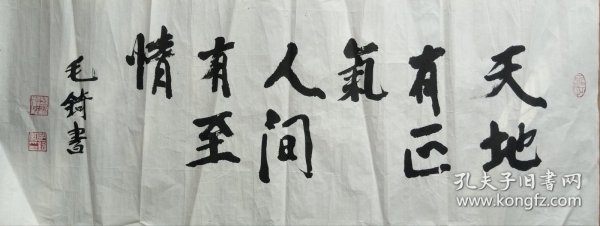 天地
有正
氣
人间
有至
情
毛錡書
孔夫子旧書网
www.kongfz.com